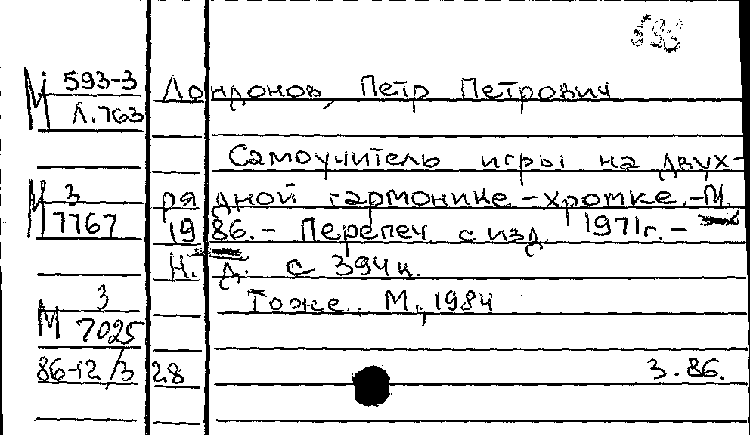 593
М 593-3
Л.763
Лондонов, Петр Петрович
Самоучитель игры на двух-
М 3
7767
рядной гармонике-хромке.-М.
1986.- Перепеч. с изд. 1971г.-
Н. Д. с 394 ц.
М 3
7025
Тоже. М., 1984
86-12/3 28
3.86.